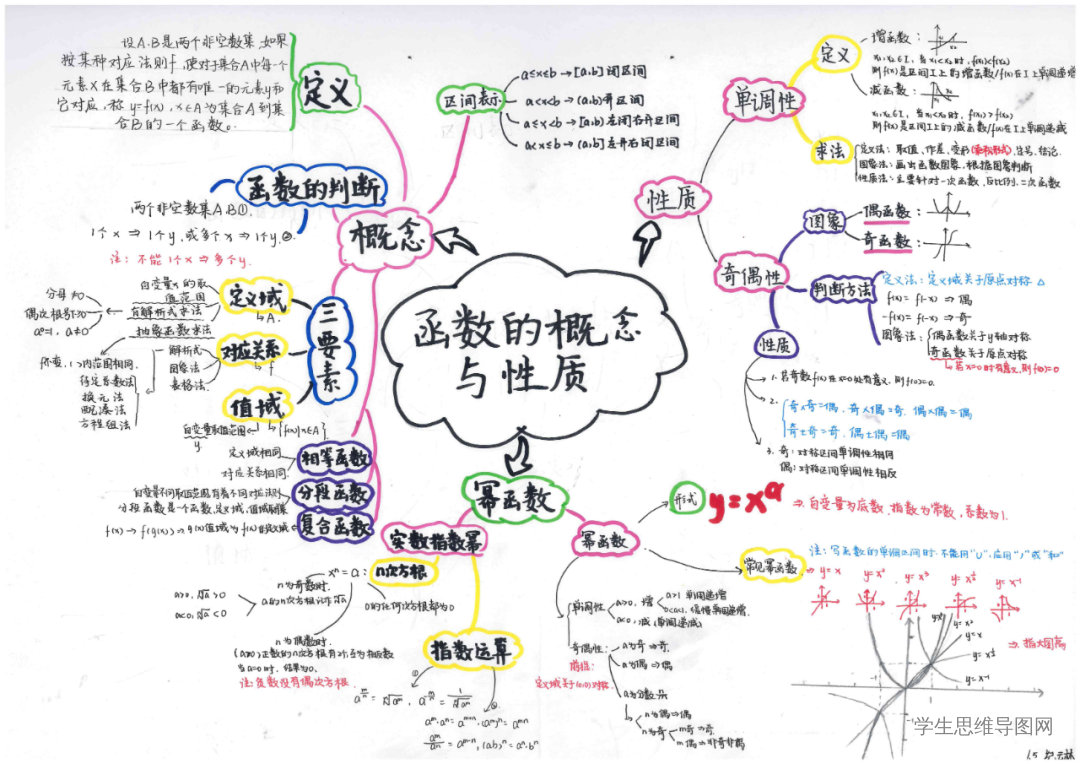 函数的概念
与性质
概念
定义
设A.B是两个非空数集.如果
按某种对应法则f,使对于集合A中每一个
元素x在集合B中都有唯一的元素y和
它对应,称y=f(x),x∈A为集合A到集
合B的一个函数。
区间表示
a≤x≤b→[a,b]闭区间
a<x<b→(a,b)开区间
a≤x<b→[a,b)左闭右开区间
a<x≤b→(a,b]左开右闭区间
函数的判断
两个非空数集A.B①.
1个x⇒1个y.或多个x⇒1个y.②.
注:不能1个x⇒多个y.
三要素
定义域
A.
自变量x的取
值范围
有解析式求法
抽象函数求法
分母≠0
偶次根号≥0
a⁰=1.a≠0
对应关系
f
解析式
图象法
表格法.
待定系数法
换元法
配凑法
方程组法
值域
{f(x)|x∈A}
自变量取值范围
y
相等函数
定义域相同
对应关系相同
分段函数
复合函数
性质
单调性
定义
增函数:
x₁,x₂∈I,当x₁<x₂时,f(x₁)<f(x₂)
则f(x)是区间I上的增函数/f(x)在I上单调递增
减函数:
x₁,x₂∈I,当x₁<x₂时,f(x₁)>f(x₂)
则f(x)是区间I上的减函数/f(x)在I上单调递减
求法
定义法:取值、作差、变形(乘积形式)、定号、结论.
图象法:画出函数图象,根据图象判断
性质法:主要针对一次函数,反比例,二次函数
奇偶性
图象
偶函数:
奇函数:
判断方法
定义法:定义域关于原点对称
f(x)=f(-x)⇒偶
-f(x)=f(-x)⇒奇
图象法:
偶函数关于y轴对称
奇函数关于原点对称
若x=0时有意义,则f(0)=0
性质
1.若奇数f(x)在x=0处有意义.则f(0)=0.
2.
奇×奇=偶,奇×偶=奇,偶×偶=偶
奇±奇=奇,偶±偶=偶
3.奇:对称区间单调性相同
偶:对称区间单调性相反
幂函数
实数指数幂
n次方根
xⁿ=a:
n为奇数时.
a的n次方根记作ⁿ√a
a>0,ⁿ√a>0
a<0,ⁿ√a<0
0的任何次方根都为0
n为偶数时.
当a=0时.结果为0.
注:负数没有偶次方根
指数运算
①
②
幂函数
形式
y=xᵅ
⇒自变量为底数,指数为常数,系数为1.
常见幂函数
注:写函数的单调区间时,不能用"∪",应用","或"和"
⇒y=x
y=x²
y=x³
y=x^½
y=x⁻¹
y=x³
y=x²
y=x
y=x^½
y=x⁻¹
⇒指大图高
单调性
a>0,增
a>1单调递增
a<0,减(单调递减)
奇偶性:
定义域关于(0,0)对称
a为奇⇒奇
a为偶⇒偶
a为分数
n为偶⇒偶
n为奇
m奇⇒奇
m偶⇒非奇非偶
学生思维导图网